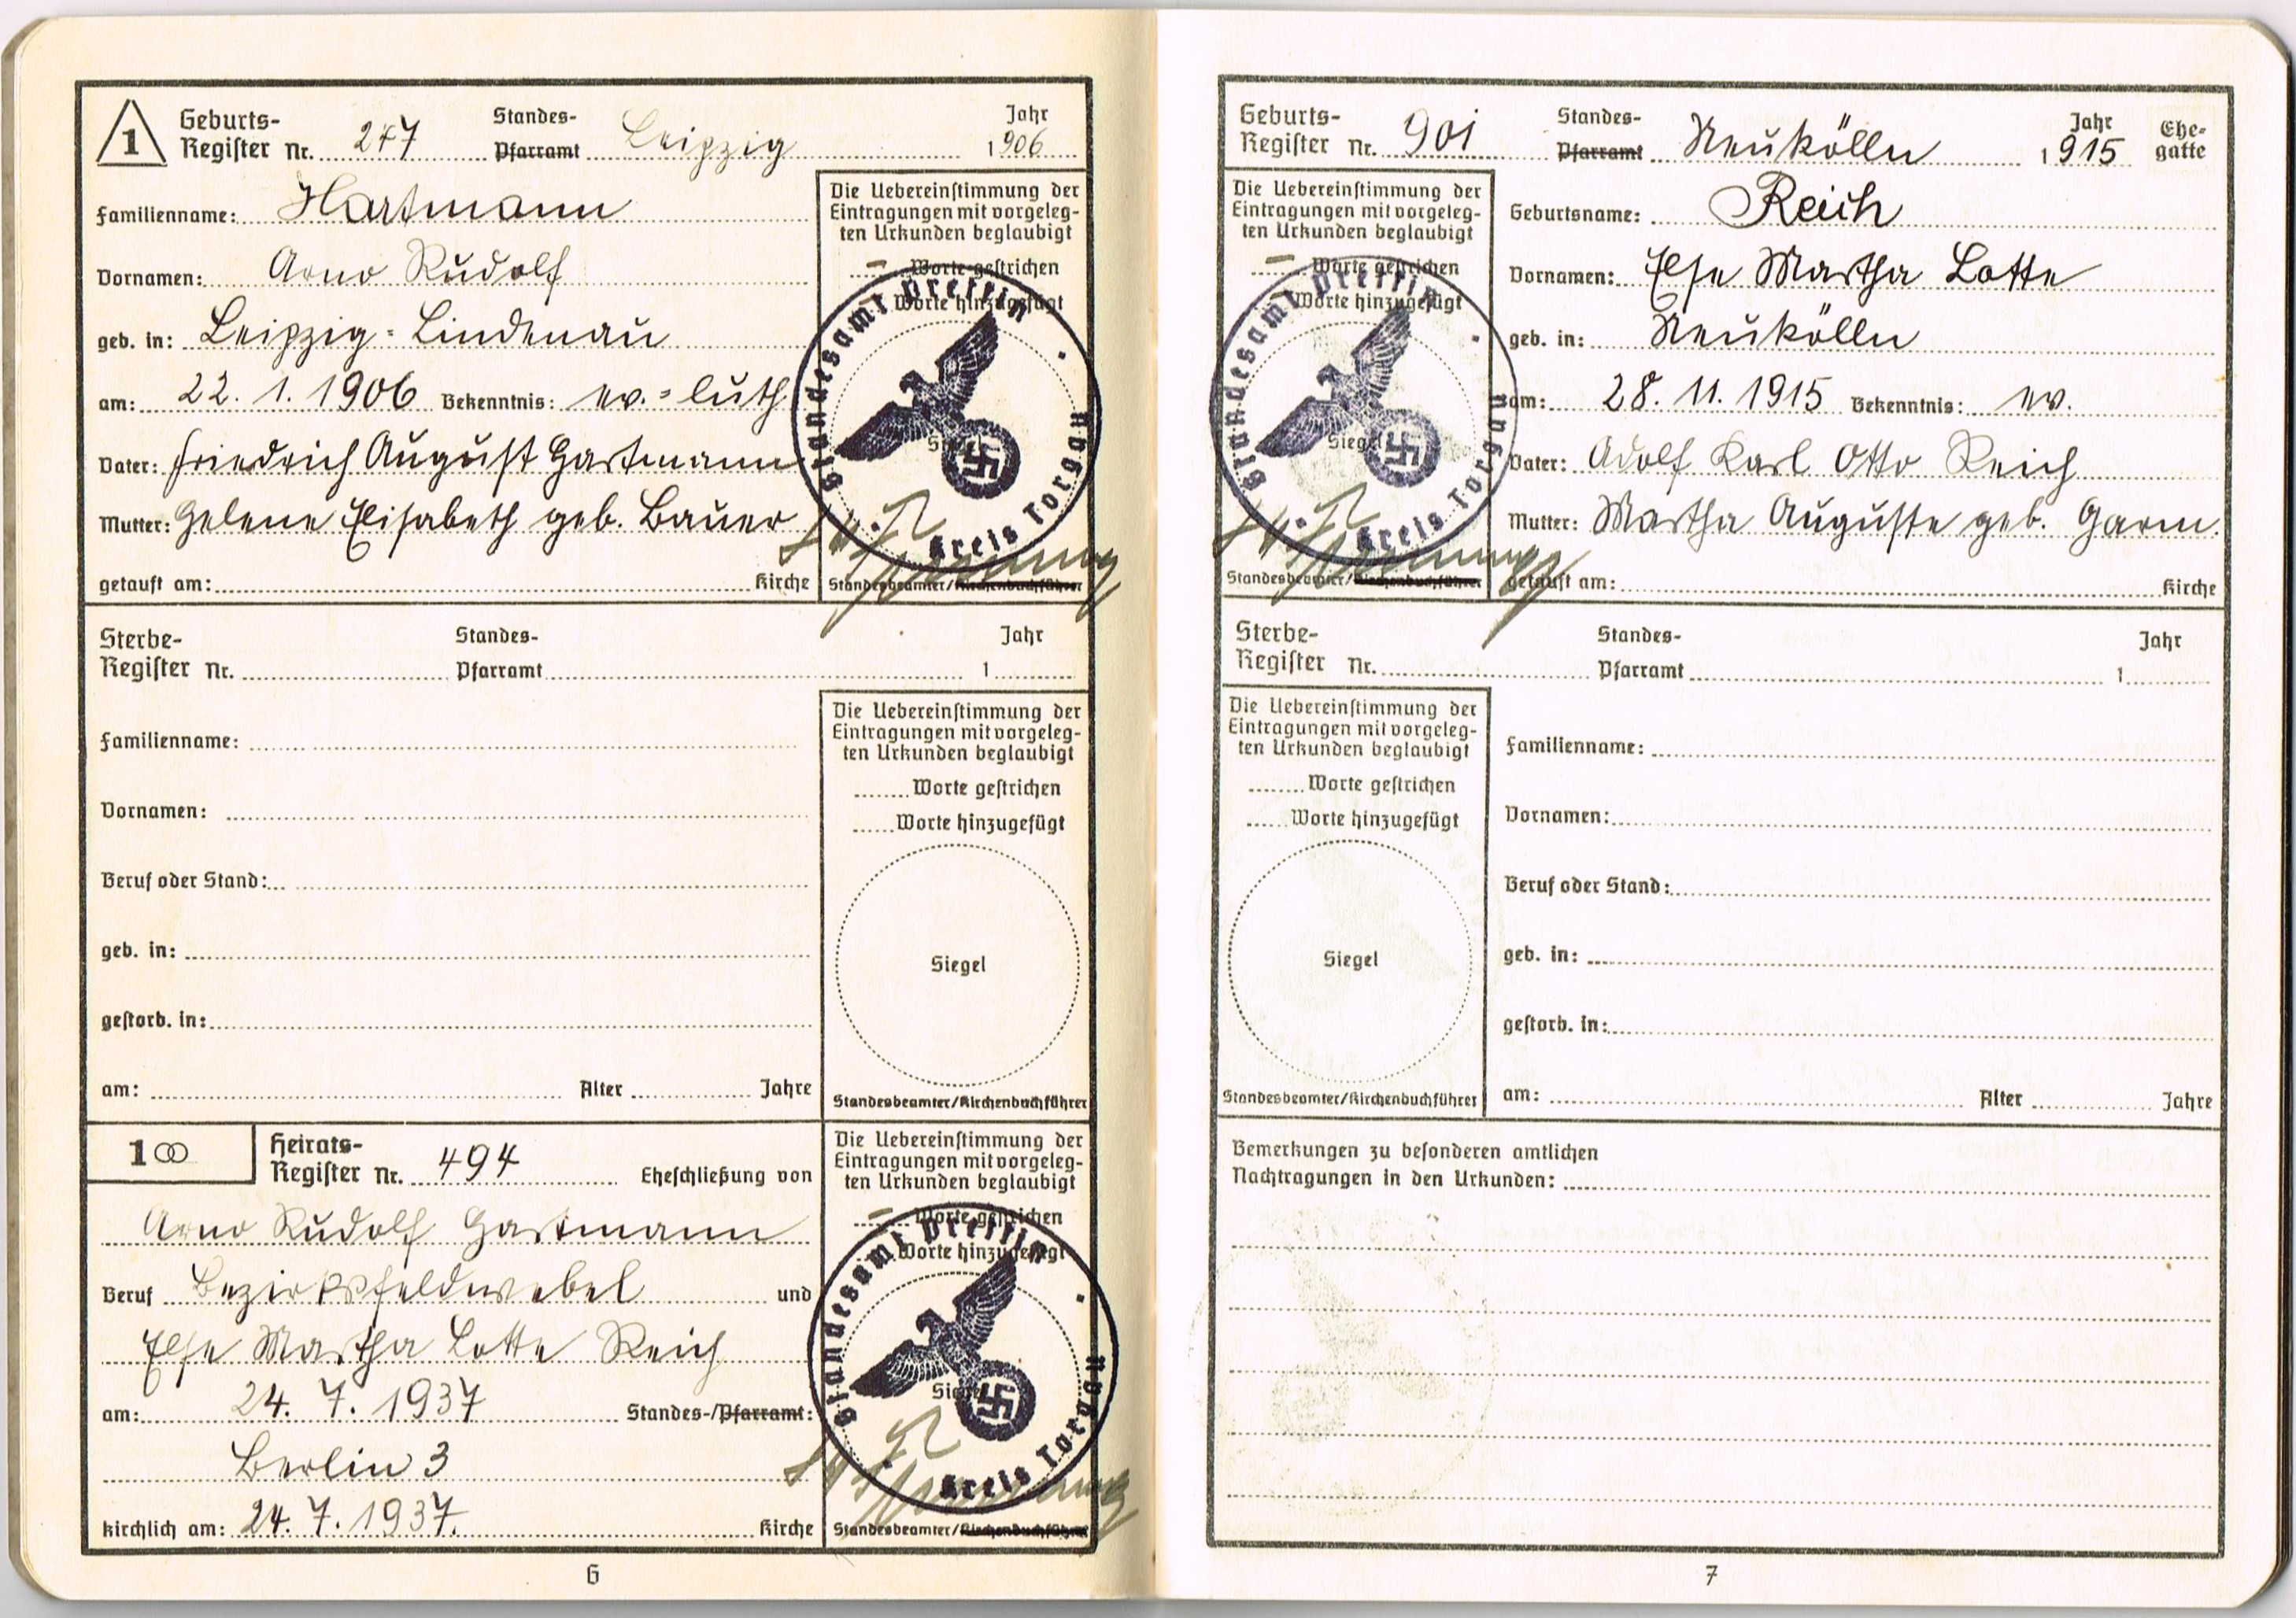 1
Geburts- Standes- Jahr
Register Nr. 247 Pfarramt Leipzig 1906
Familienname: Hartmann
Vornamen: Arno Rudolf
geb. in: Leipzig-Lindenau
am: 22. 1. 1906 Bekenntnis: ev.=luth
Vater: Friedrich August Hartmann
Mutter: Helene Elisabeth geb. Bauer
getauft am: Kirche
Die Uebereinstimmung der
Eintragungen mit vorgeleg-
ten Urkunden beglaubigt
– Worte gestrichen
Worte hinzugefügt
Siegel
Standesamt Prettin
Kreis Torgau
Standesbeamter/Kirchenbuchführer
Sterbe- Standes- Jahr
Register Nr. Pfarramt 1
Familienname:
Vornamen:
Beruf oder Stand:
geb. in:
gestorb. in:
am: Alter Jahre
Die Uebereinstimmung der
Eintragungen mit vorgeleg-
ten Urkunden beglaubigt
Worte gestrichen
Worte hinzugefügt
Siegel
Standesbeamter/Kirchenbuchführer
1 ⚭ Heirats-
Register Nr. 494 Eheschließung von
Arno Rudolf Hartmann
Beruf Bezirksfeldwebel und
Else Martha Lotte Reich
am: 24. 7. 1937 Standes-/Pfarramt:
Berlin 3
kirchlich am: 24. 7. 1937. Kirche
Die Uebereinstimmung der
Eintragungen mit vorgeleg-
ten Urkunden beglaubigt
– Worte gestrichen
Worte hinzugefügt
Siegel
Standesamt Prettin
Kreis Torgau
Standesbeamter/Kirchenbuchführer
6
Geburts- Standes- Jahr Ehe-
Register Nr. 901 Pfarramt Neukölln 1915 gatte
Die Uebereinstimmung der
Eintragungen mit vorgeleg-
ten Urkunden beglaubigt
– Worte gestrichen
Worte hinzugefügt
Siegel
Standesamt Prettin
Kreis Torgau
Standesbeamter/Kirchenbuchführer
Geburtsname: Reich
Vornamen: Else Martha Lotte
geb. in: Neukölln
am: 28. 11. 1915 Bekenntnis: ev.
Vater: Adolf Karl Otto Reich
Mutter: Martha Auguste geb. Harm.
getauft am: Kirche
Sterbe- Standes- Jahr
Register Nr. Pfarramt 1
Die Uebereinstimmung der
Eintragungen mit vorgeleg-
ten Urkunden beglaubigt
Worte gestrichen
Worte hinzugefügt
Siegel
Standesbeamter/Kirchenbuchführer
Familienname:
Vornamen:
Beruf oder Stand:
geb. in:
gestorb. in:
am: Alter Jahre
Bemerkungen zu besonderen amtlichen
Nachtragungen in den Urkunden:
7